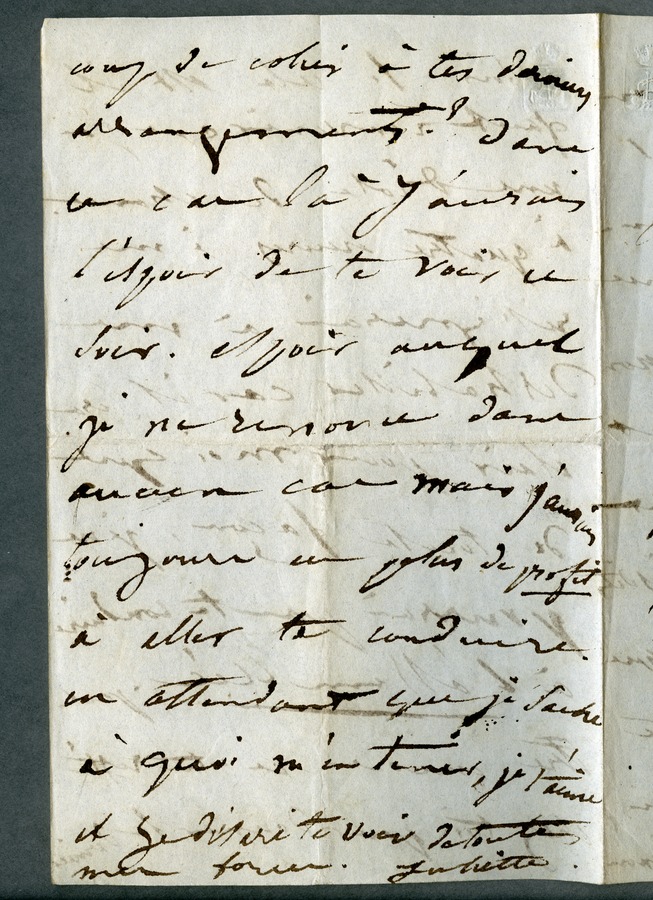 coup de colier à tes derniers
arrangements ? dans
ce cas là j'aurais
l'espoir de te voir ce
soir. espoir auquel
je ne renonce dans
aucun cas mais j'aurais
toujours ce plus de profit
à aller te conduire.
en attendant que je sache
à quoi m'en tenir, je t'aime
et je désire te voir de toutes
mes forces. Juliette.